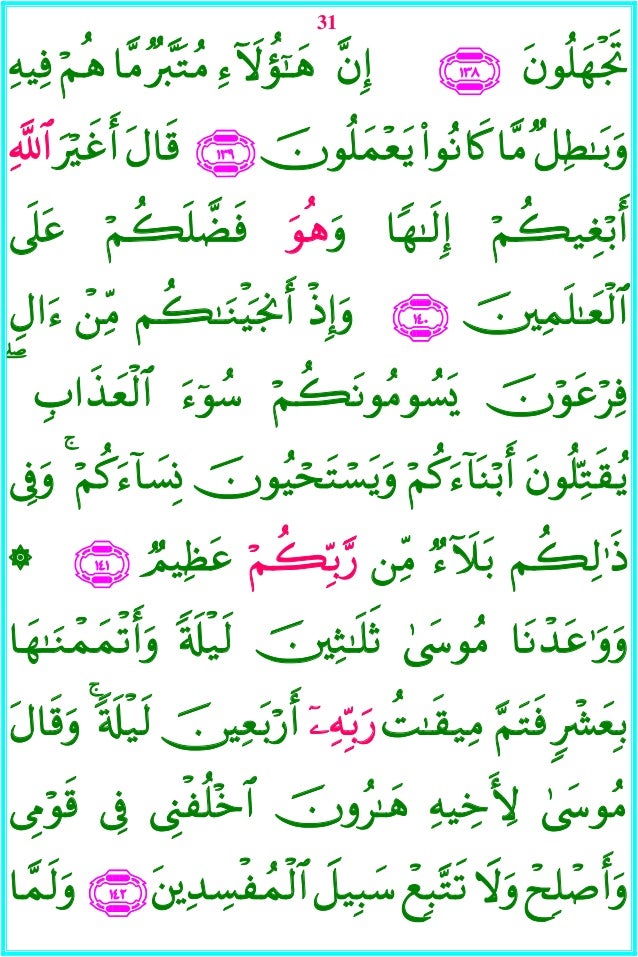 31
تَجۡهَلُونَ ١٣٨ إِنَّ هَٰٓؤُلَآءِ مُتَبَّرٞ مَّا هُمۡ فِيهِ
وَبَٰطِلٞ مَّا كَانُواْ يَعۡمَلُونَ ١٣٩ قَالَ أَغَيۡرَ ٱللَّهِ
أَبۡغِيكُمۡ إِلَٰهٗا وَهُوَ فَضَّلَكُمۡ عَلَى
ٱلۡعَٰلَمِينَ ١٤٠ وَإِذۡ أَنجَيۡنَٰكُم مِّنۡ ءَالِ
فِرۡعَوۡنَ يَسُومُونَكُمۡ سُوٓءَ ٱلۡعَذَابِۖ
يُقَتِّلُونَ أَبۡنَآءَكُمۡ وَيَسۡتَحۡيُونَ نِسَآءَكُمۡۚ وَفِي
ذَٰلِكُم بَلَآءٞ مِّن رَّبِّكُمۡ عَظِيمٞ ١٤١ ۞
وَوَٰعَدۡنَا مُوسَىٰ ثَلَٰثِينَ لَيۡلَةٗ وَأَتۡمَمۡنَٰهَا
بِعَشۡرٖ فَتَمَّ مِيقَٰتُ رَبِّهِۦٓ أَرۡبَعِينَ لَيۡلَةٗۚ وَقَالَ
مُوسَىٰ لِأَخِيهِ هَٰرُونَ ٱخۡلُفۡنِي فِي قَوۡمِي
وَأَصۡلِحۡ وَلَا تَتَّبِعۡ سَبِيلَ ٱلۡمُفۡسِدِينَ ١٤٢ وَلَمَّا